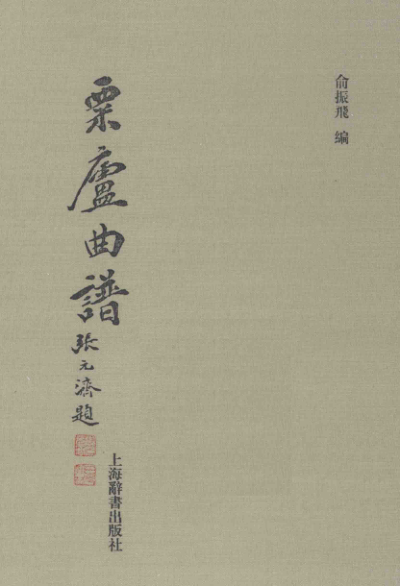 俞振飛 编
粟廬曲譜
張元濟題
上海辭書出版社